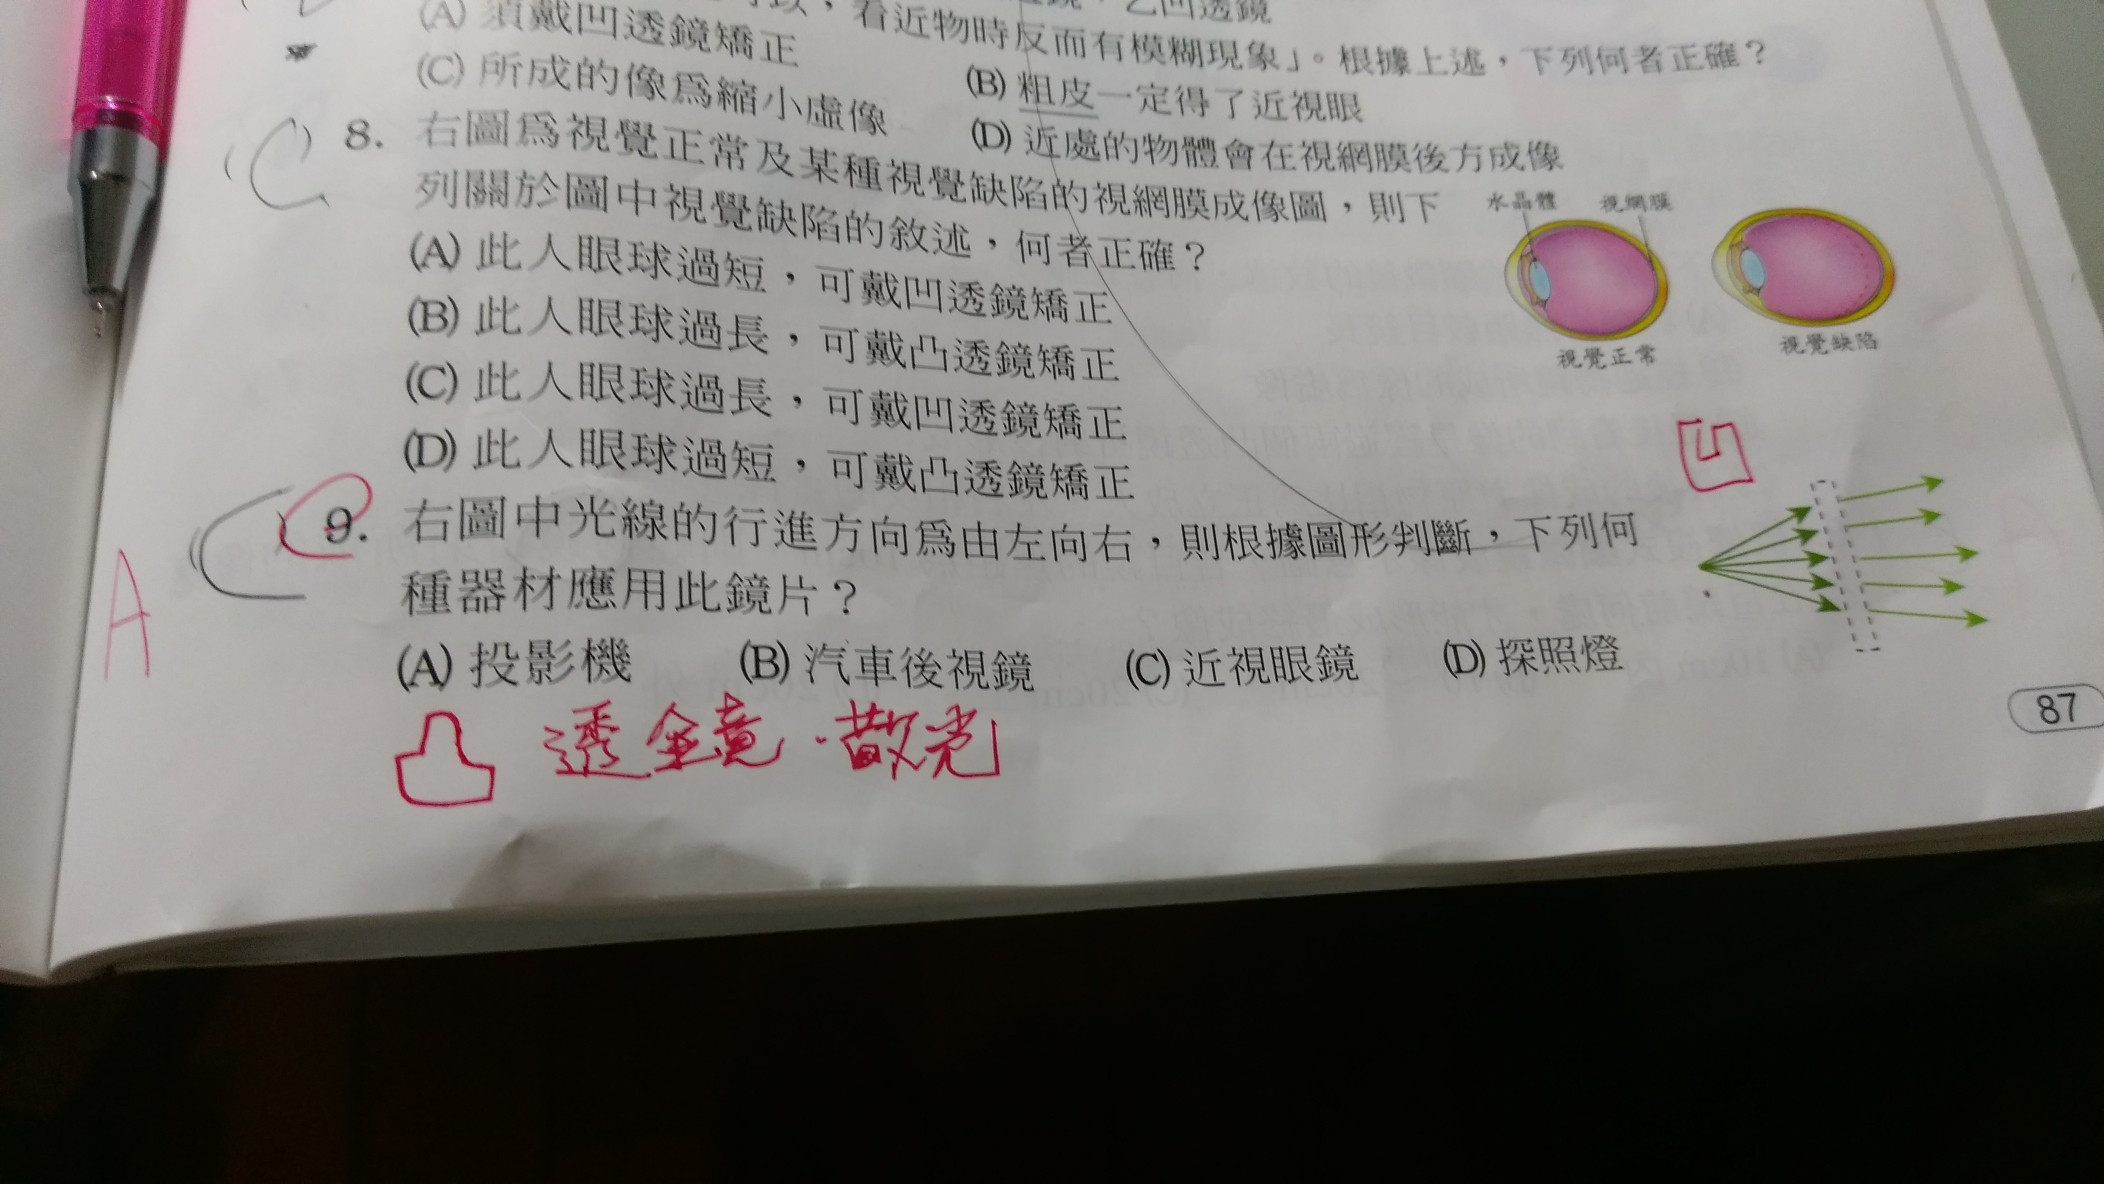 乙凹透鏡
看近物時反而有模糊現象」。根據上述,下列何者正確?
(A) 須戴凹透鏡矯正
(B) 粗皮一定得了近視眼
(C) 所成的像爲縮小虛像
(D) 近處的物體會在視網膜後方成像
(C)
8. 右圖爲視覺正常及某種視覺缺陷的視網膜成像圖,則下
列關於圖中視覺缺陷的敘述,何者正確?
(A) 此人眼球過短,可戴凹透鏡矯正
(B) 此人眼球過長,可戴凸透鏡矯正
(C) 此人眼球過長,可戴凹透鏡矯正
(D) 此人眼球過短,可戴凸透鏡矯正
水晶體 視網膜
視覺正常
視覺缺陷
凹
A
C
9. 右圖中光線的行進方向爲由左向右,則根據圖形判斷,下列何
種器材應用此鏡片?
(A) 投影機 (B) 汽車後視鏡 (C) 近視眼鏡 (D) 探照燈
凸 透鏡.散光
87